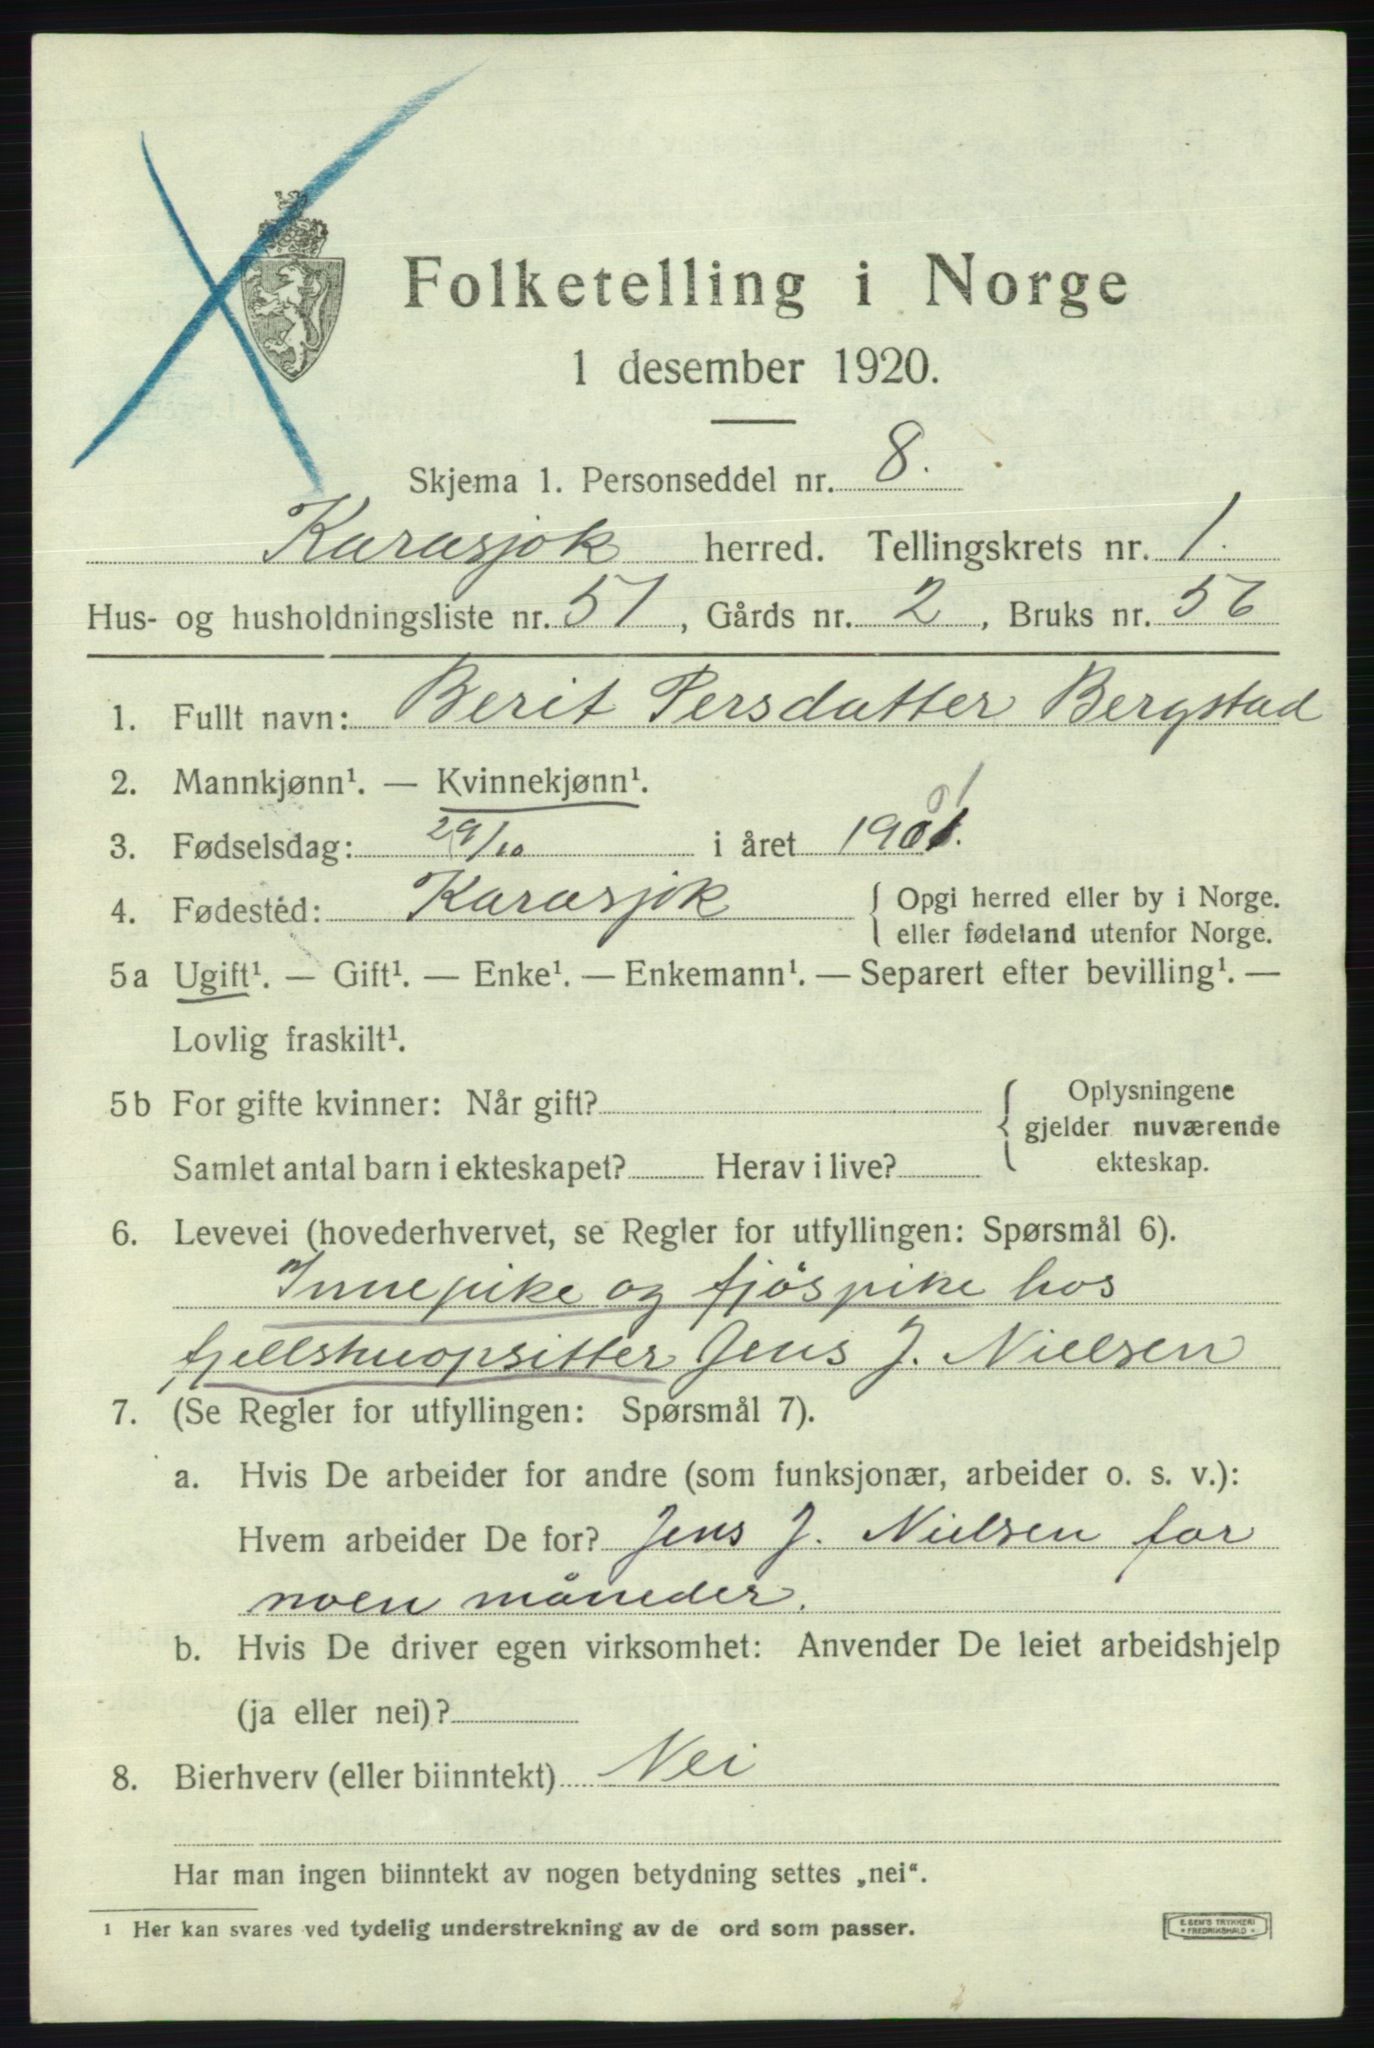 Folketelling i Norge
1 desember 1920.
Skjema 1. Personseddel nr. 8.
Karasjok herred. Tellingskrets nr. 1.
Hus- og husholdningsliste nr. 51, Gårds nr. 2, Bruks nr. 56
1. Fullt navn: Berit Persdatter Bergstad
2. Mannkjønn¹. — Kvinnekjønn¹.
01
3. Fødselsdag: 29/10 i året 1901.
4. Fødested: Karasjok { Opgi herred eller by i Norge.
eller fødeland utenfor Norge.
5a Ugift¹. — Gift¹. — Enke¹. — Enkemann¹. — Separert efter bevilling¹. —
Lovlig fraskilt¹.
5b For gifte kvinner: Når gift? { Oplysningene
gjelder nuværende
Samlet antal barn i ekteskapet? Herav i live? ekteskap.
6. Levevei (hovederhvervet, se Regler for utfyllingen: Spørsmål 6).
Innepike og fjøspike hos
fjellstueopsitter Jens J. Nielsen
7. (Se Regler for utfyllingen: Spørsmål 7).
a. Hvis De arbeider for andre (som funksjonær, arbeider o. s. v.):
Hvem arbeider De for? Jens J. Nielsen for
noen måneder.
b. Hvis De driver egen virksomhet: Anvender De leiet arbeidshjelp
(ja eller nei)?
8. Bierhverv (eller biinntekt) Nei
Har man ingen biinntekt av nogen betydning settes „nei“.
1 Her kan svares ved tydelig understrekning av de ord som passer.
E. SEM'S TRYKKERI
• FREDRIKSHALD •